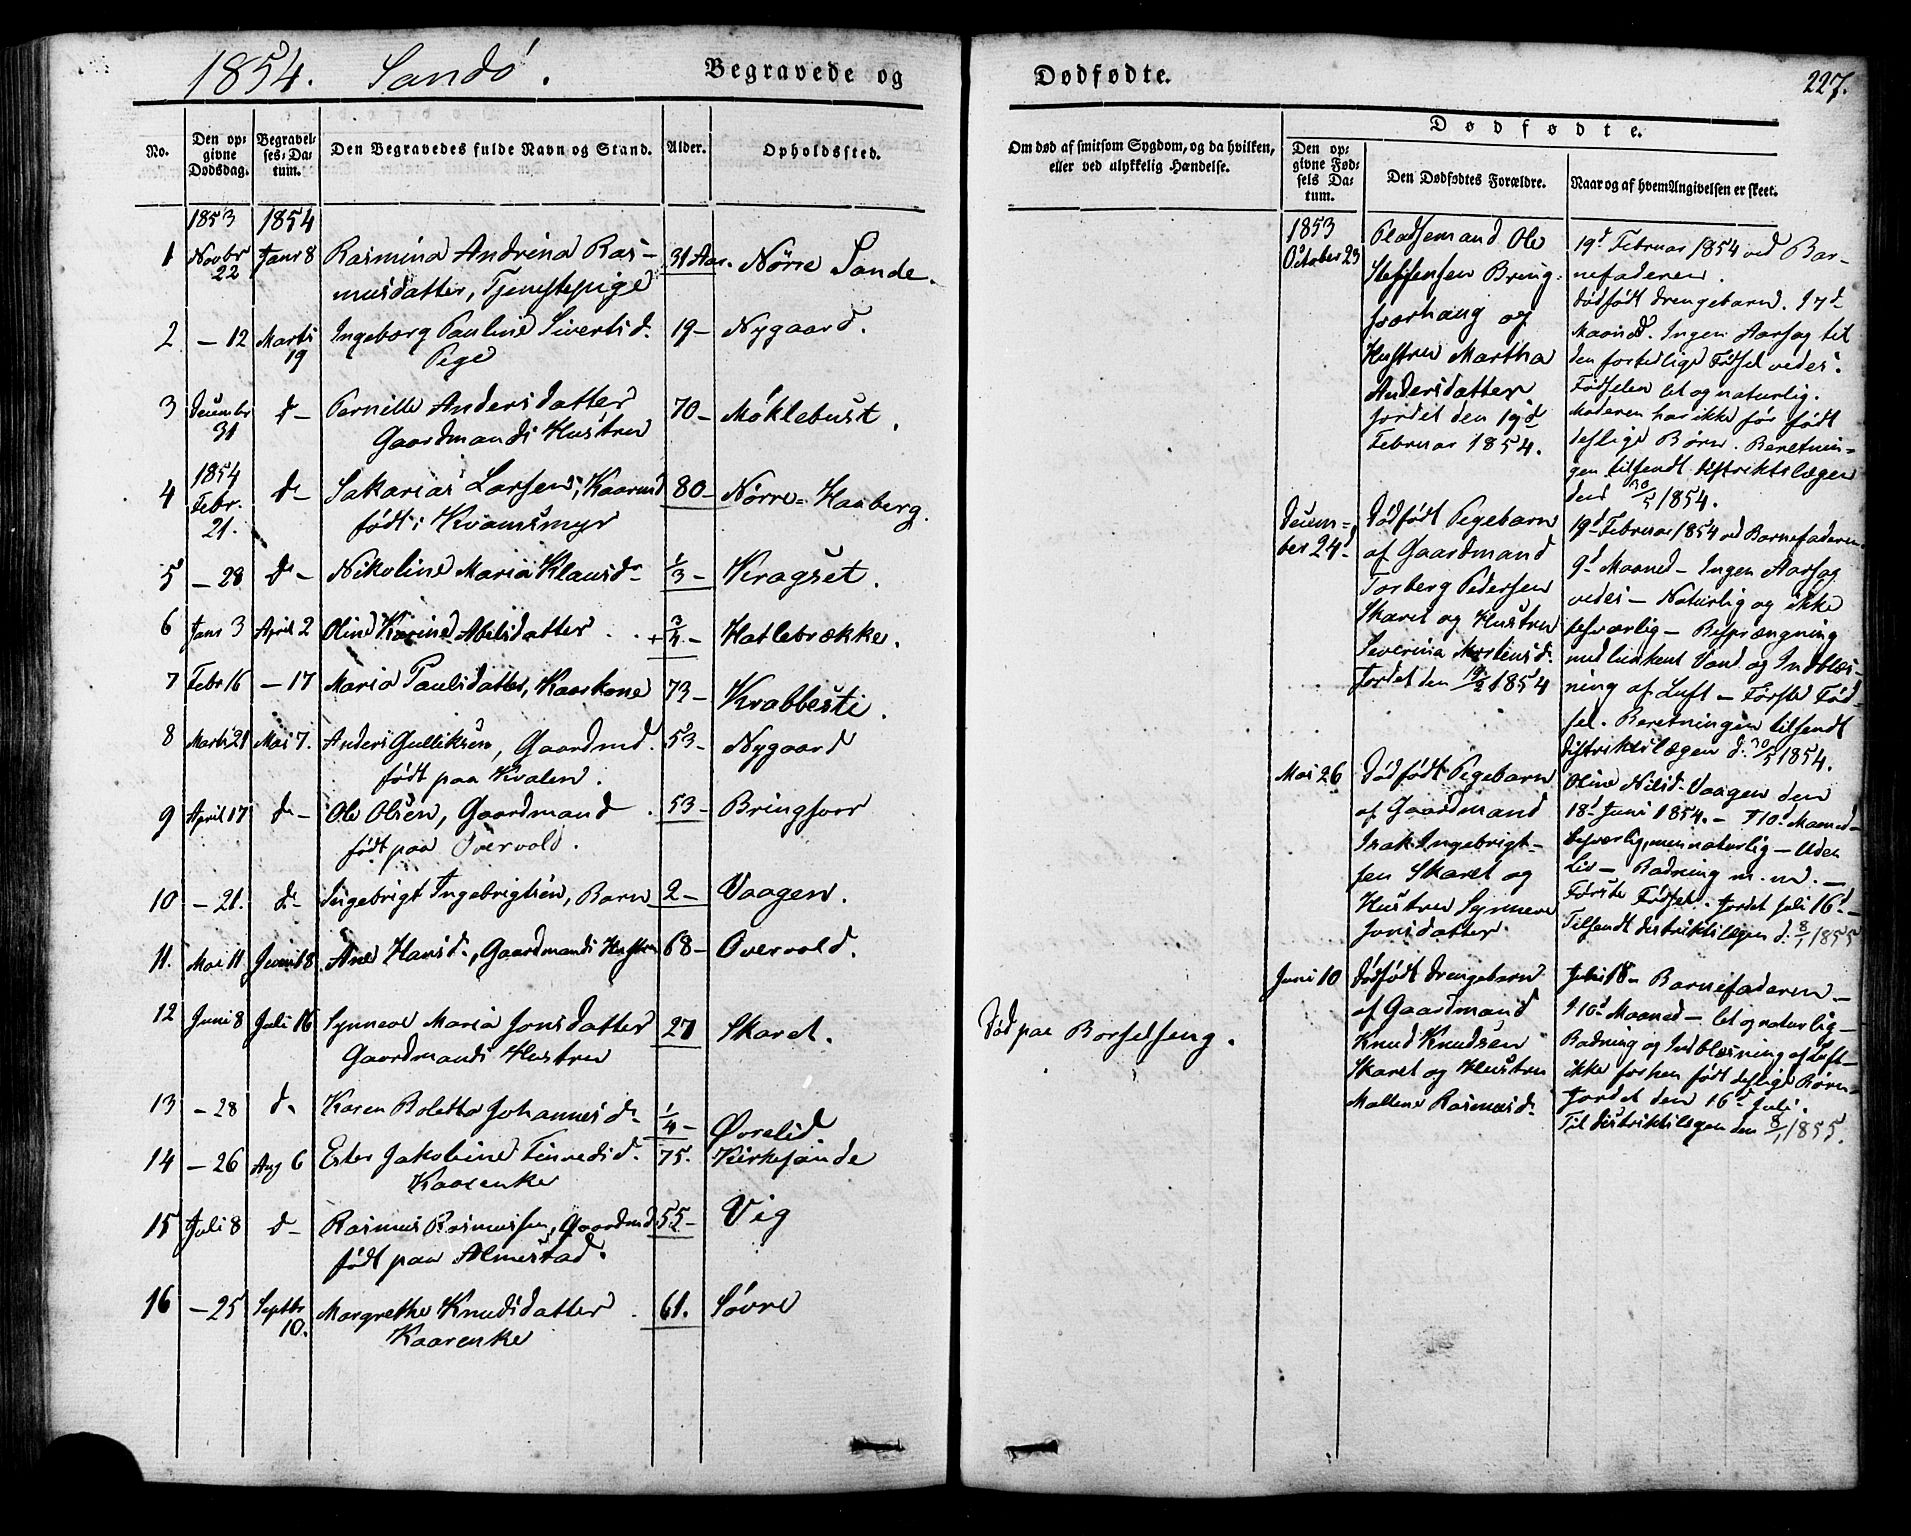 1854. Sandö. Begravede og Dødfødte. 227.
No.
Den op-
givne
Dødsdag.
Begravel-
ses-Da-
tum.
Den Begravedes fulde Navn og Stand.
Alder.
Opholdssted.
Om død af smitsom Sygdom, og da hvilken,
eller ved ulykkelig Hændelse.
Dødfødte.
Den op-
givne Fød-
sels Da-
tum.
Den Dødfødtes Forældre.
Naar og af hvem Angivelsen er skeet.
1853 1854
1 Novbr 22 Janr 8 Rasmina Andrina Ras- 31 Aar. Nörre Sande.
musdatter, Tjenstepige
2 — 12 Marts 19 Ingeborg Pauline Sivertsd. 19 — Nygaard.
Pige
3 Decembr 31 d — Pernille Andersdatter 70 — Möklebust.
Gaardmands Hustru
1854
4 Febr. 21. d — Sakarias Larsen, Kaarmd 80 — Nörre-Haaberg.
født i Kvamsmyr
5 — 28 d — Nikoline Maria Klausd. 1/3 — Kragset.
6 Janr 3 April 2 Oline Karine Abelsdatter . . + 3/4 — Hatlebrække.
7 Febr 16 — 17 Maria Paulsdatter, Kaarkone 73 — Krabbesti.
8 Marts 21 Mai 7. Anders Gulliksen, Gaardmd. 53 — Nygaard
født paa Kvalen.
9 April 17 d — Ole Olsen, Gaardmand . 53 — Bringsvor
født paa Overvold.
10 — 21. d — Ingebrigt Ingebrigtsen, Barn 2 — Vaagen.
11. Mai 11 Juni 18 Ane Hansd., Gaardmands Hustru 68 — Overvold.
12 Juni 8 Juli 16 Synneve Maria Jonsdatter 27 Skaret. Död paa Barselseng.
Gaardmands Hustru
13 — 28 d — Karen Boletta Johannesd. 1/4 — Øvrelid
14 — 26 Aug 6 Ester Jakobine Finnedsd. 75. Kirkesande
Kaarenke
15 Juli 8 d — Rasmus Rasmussen, Gaardmd 55 — Vig
født paa Almestad.
16 — 25 Septbr 10. Margrethe Knudsdatter . 61. Sövre
Kaarenke
1853
October 23
Pladsemand Ole
Steffensen Bring-
sværhaug og
Hustru Martha
Andersdatter
jordet den 19d
Februar 1854.
19d Februar 1854 ved Bar-
nefaderen.
Dödfödt Drengebarn. I 7d
Maaned. Ingen Aarsag til
den fortidlige Födsel vides.
Födselen let og naturlig.
Moderen har ikke för födt
deslige Börn. Beretnin-
gen tilsendt Distriktslægen
dend 30/5 1854.
Decem-
ber 24d
Dödfödt Pigebarn
af Gaardmand
Torberg Pedersen
Skaret og Hustru
Severina Mortensd.
Jordet den 19/2 1854
19d Februar 1854 ved Barnefaderen.
9d Maaned — Ingen Aarsag
vides — Naturlig og ikke
besværlig — Besprængning
med lunkent Vand og Indblæs-
ning af Luft — Förste Föd-
sel. Beretningen tilsendt
Distriktslægen d. 30/5 1854.
Mai 26
Dödfödt Pigebarn
af Gaardmand
Isak Ingebrigt-
sen Skaret og
Hustru Synneve
Jonsdatter.
Oline Nilsd. Vaagen den
18d Juni 1854. — I 10d Maaned —
besværlig, men naturlig — Uden
Liv — Badning m. m. —
Förste Födsel. Jordet Juli 16d —
Tilsendt Distriktslægen d. 8/1 1855
Juni 10
Dödfödt Drengebarn
af Gaardmand
Knud Knudsen
Skaret og Hustru
Maltene Rasmusd.
Juli 18 — Barnefaderen —
I 10d Maaned — let og naturlig —
Badning og Indblæsning af Luft —
ikke forhen födt deslige Börn —
Jordet den 16d Juli.
Til Distriktslægen den 8/1 1855.